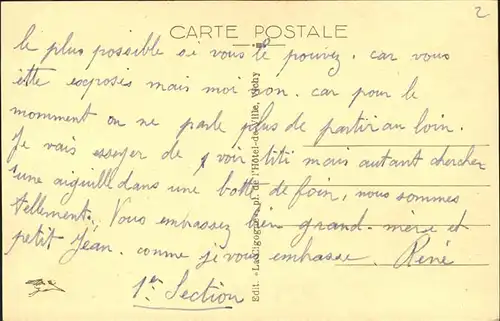 2
CARTE POSTALE
le plus possible si vous le pouvez. car vous
ette exposés mais moi non. car pour le
momment on ne parle plus de partir au loin.
Je vais essayer de voir titi mais autant chercher
une aiguille dans une botte de foin, nous sommes
tellement. Vous embrassez bien grand-mère et
petit Jean. comme je vous embrasse. René
1ère Section
Edit. pl. de l'Hôtel-de-Ville, Vichy